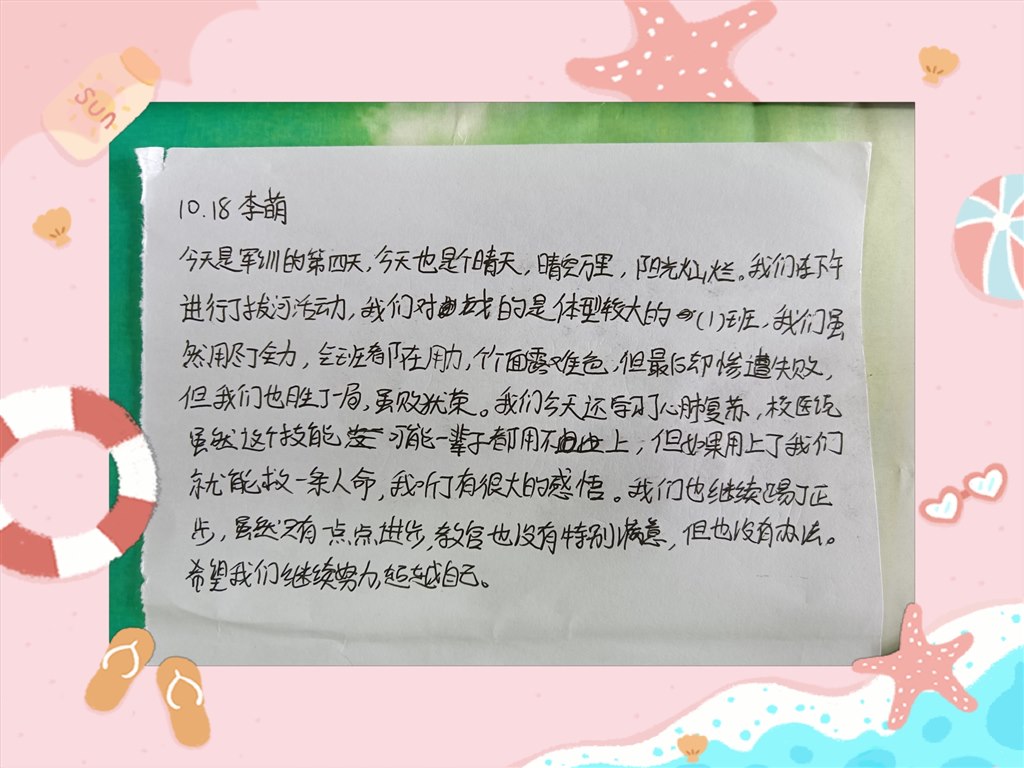 sun
10.18 李萌
今天是军训的第四天,今天也是个晴天,晴空万里,阳光灿烂。我们在下午
进行了拔河活动,我们对战的是体型较大的(1)班,我们虽
然用尽了全力,全班都在用力,个个面露难色,但最后却惨遭失败,
但我们也胜了一局,虽败犹荣。我们今天还学习了心肺复苏,校医说
虽然这个技能可能一辈子都用不上;但如果用上了我们
就能救一条人命,我听了有很大的感悟。我们也继续踢了正
步,虽然只有一点点进步,教官也没有特别满意,但也没有办法。
希望我们继续努力,超越自己。